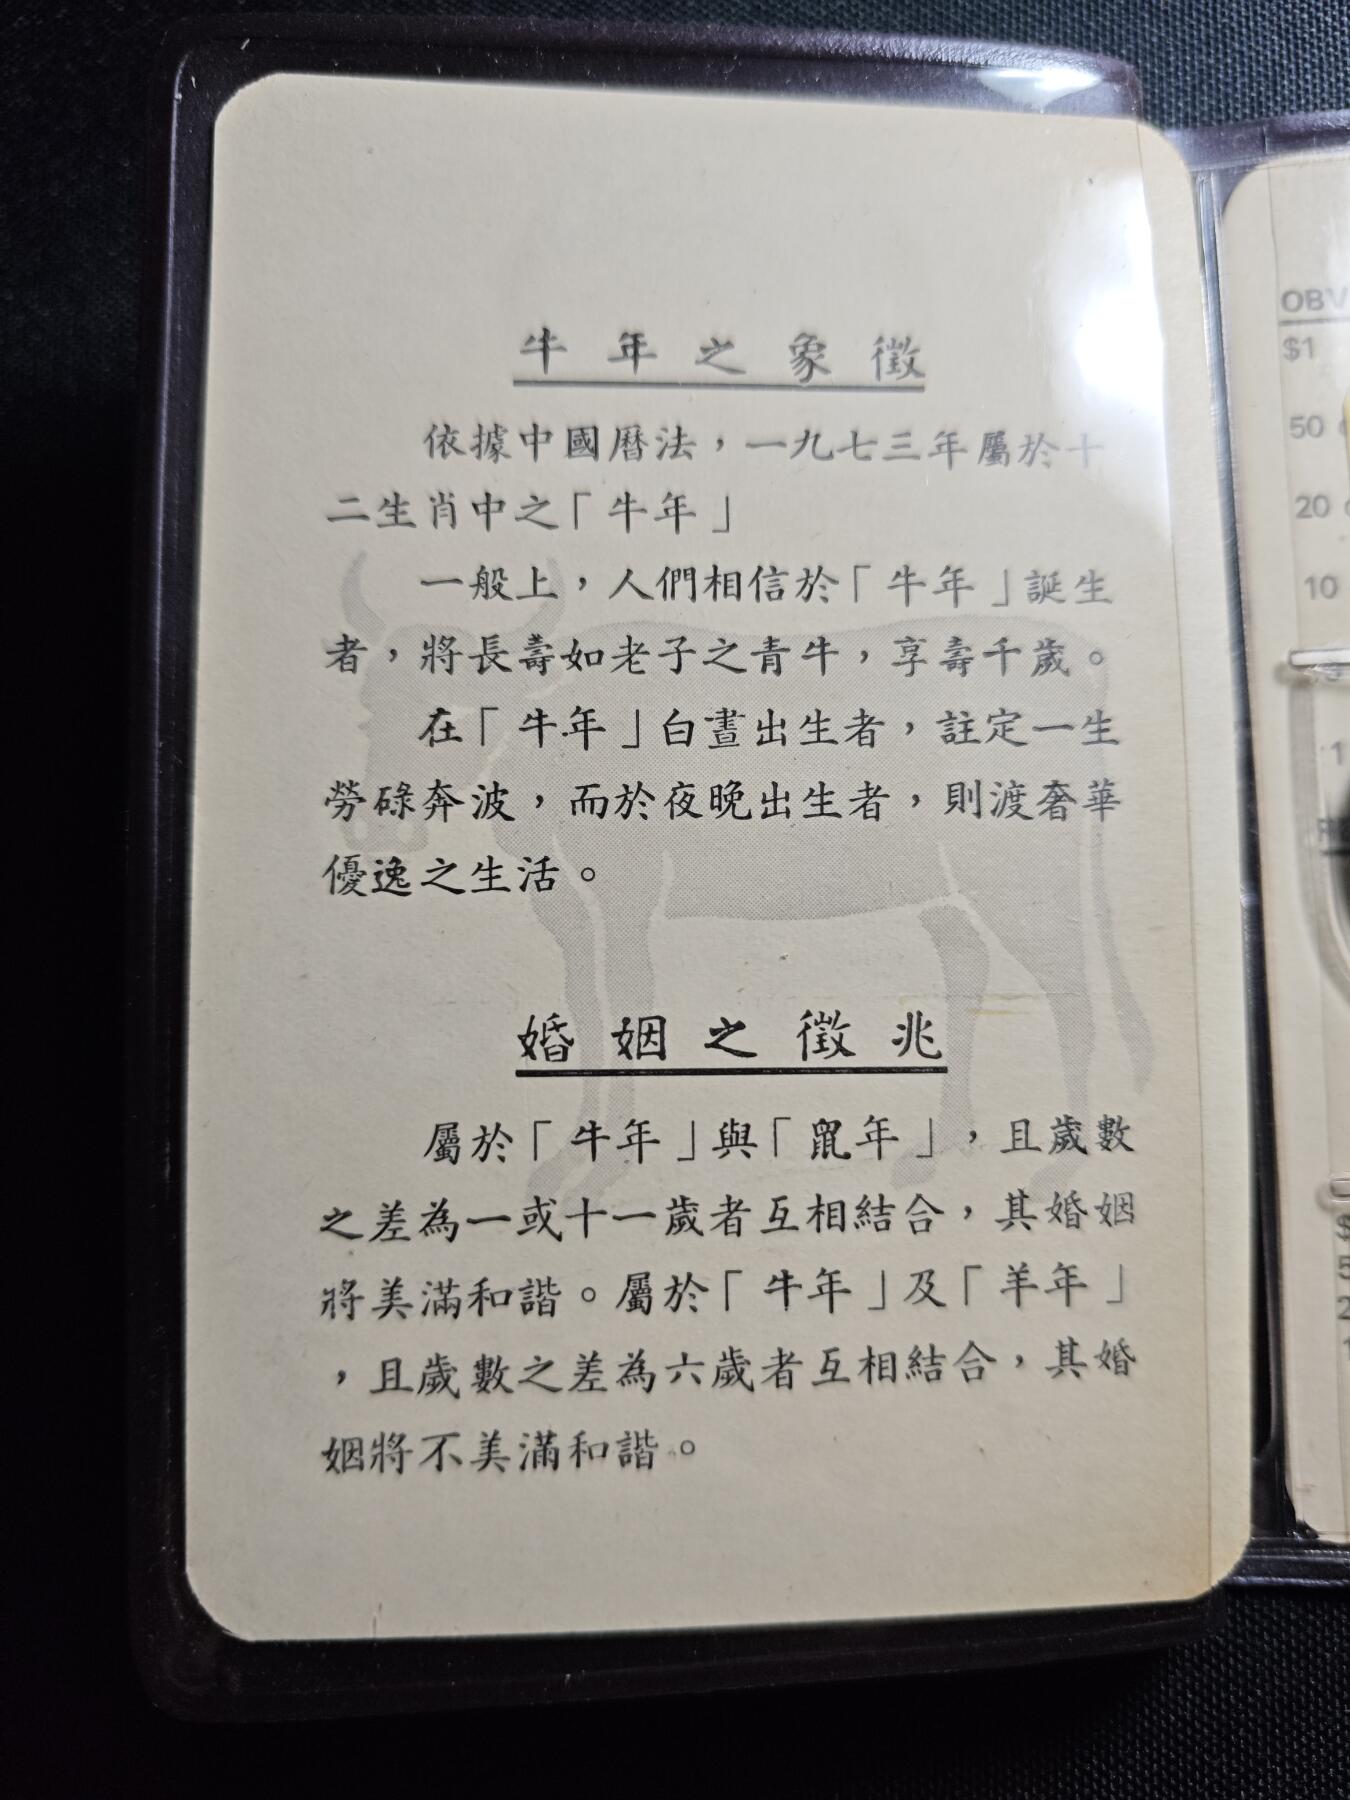 牛年之象徵
依據中國曆法，一九七三年屬於十
二生肖中之「牛年」
一般上，人們相信於「牛年」誕生
者，將長壽如老子之青牛，享壽千歲。
在「牛年」白晝出生者，註定一生
勞碌奔波，而於夜晚出生者，則渡奢華
優逸之生活。
婚姻之徵兆
屬於「牛年」與「鼠年」，且歲數
之差為一或十一歲者互相結合，其婚姻
將美滿和諧。屬於「牛年」及「羊年」
，且歲數之差為六歲者互相結合，其婚
姻將不美滿和諧。
OBV
$1
50
20
10
1